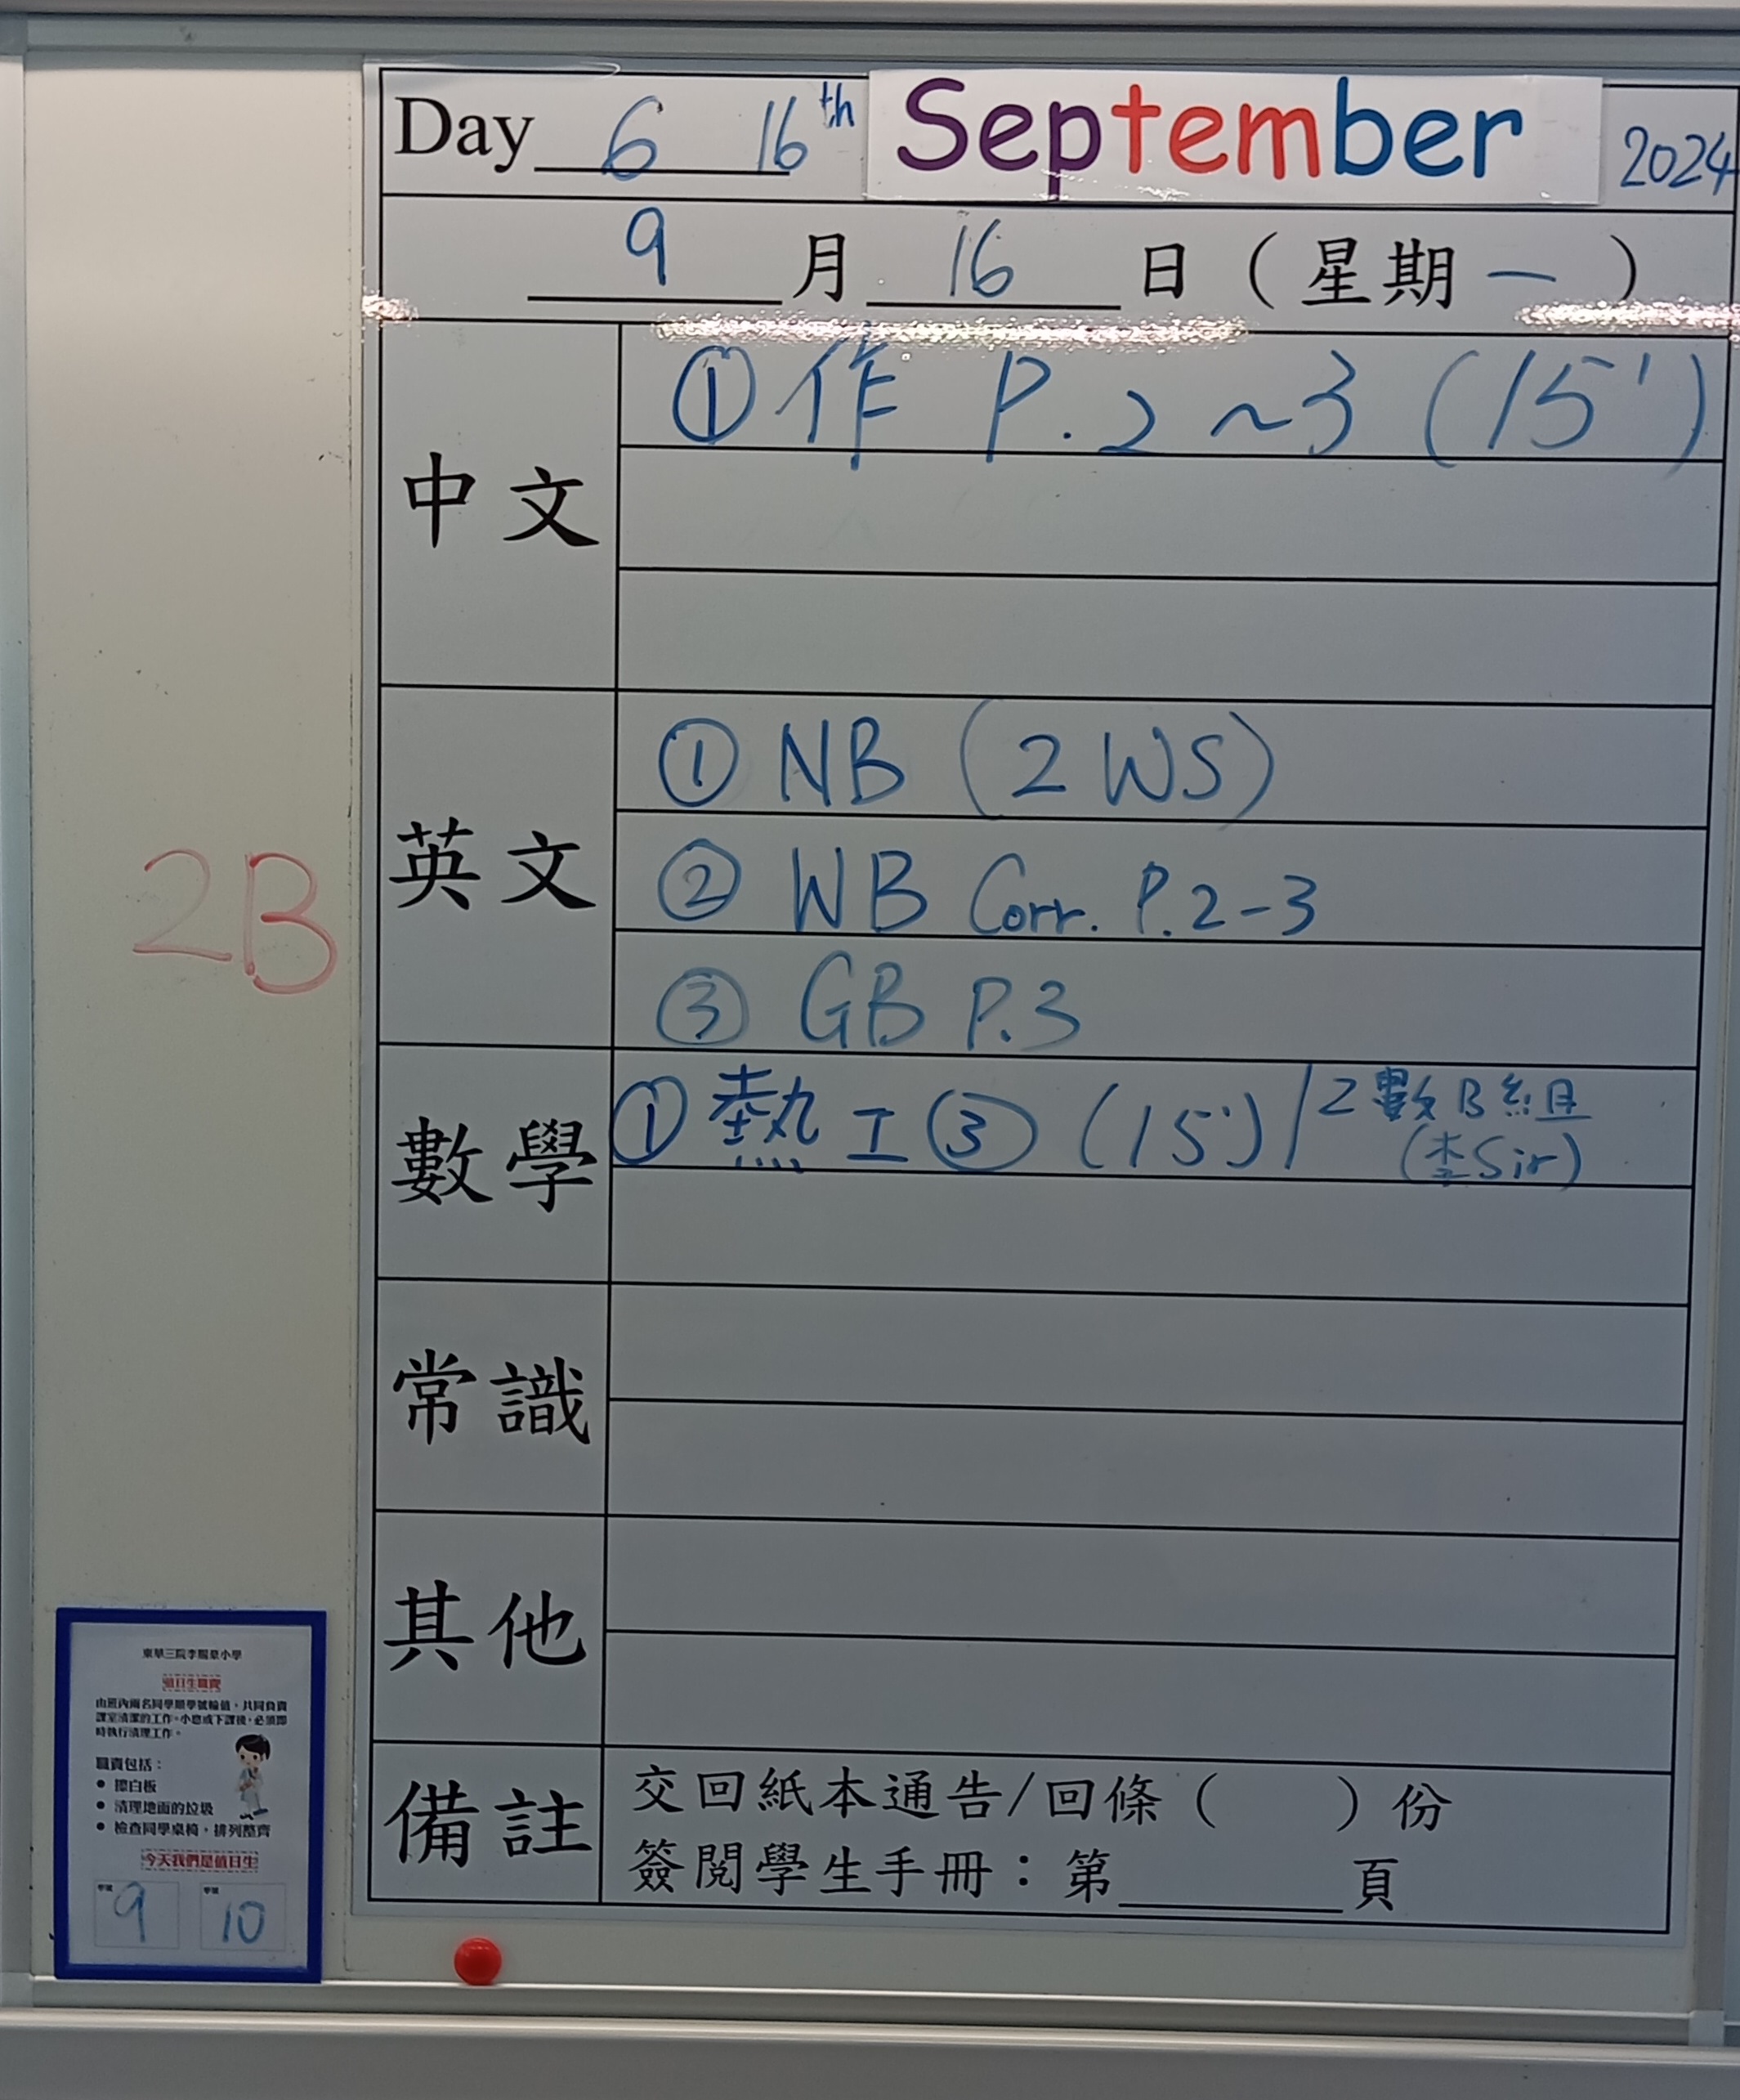 Day 6 16th September 2024
9 月 16 日（星期一）
中文
①作 P.2~3 (15')
英文
① NB (2 WS)
② WB Corr. P.2-3
③ GB P.3
數學
① 熱工③ (15') | 2數B組
(李Sir)
常識
其他
備註
交回紙本通告/回條（ ）份
簽閱學生手冊：第______頁
2B
東華三院李賜豪小學
值日生職責
由班內兩名同學順學號輪值，共同負責
課室清潔的工作。小息或下課後，必須即
時執行清理工作。
職責包括：
● 擦白板
● 清理地面的垃圾
● 檢查同學桌椅，排列整齊
今天我們是值日生
學號 學號
9 10